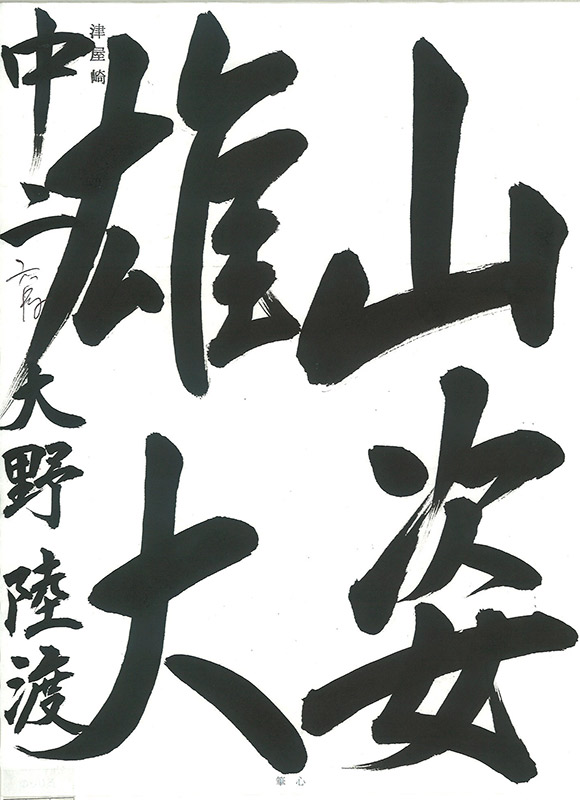 山姿
雄大
津屋崎
中二 大野陸渡
心筆